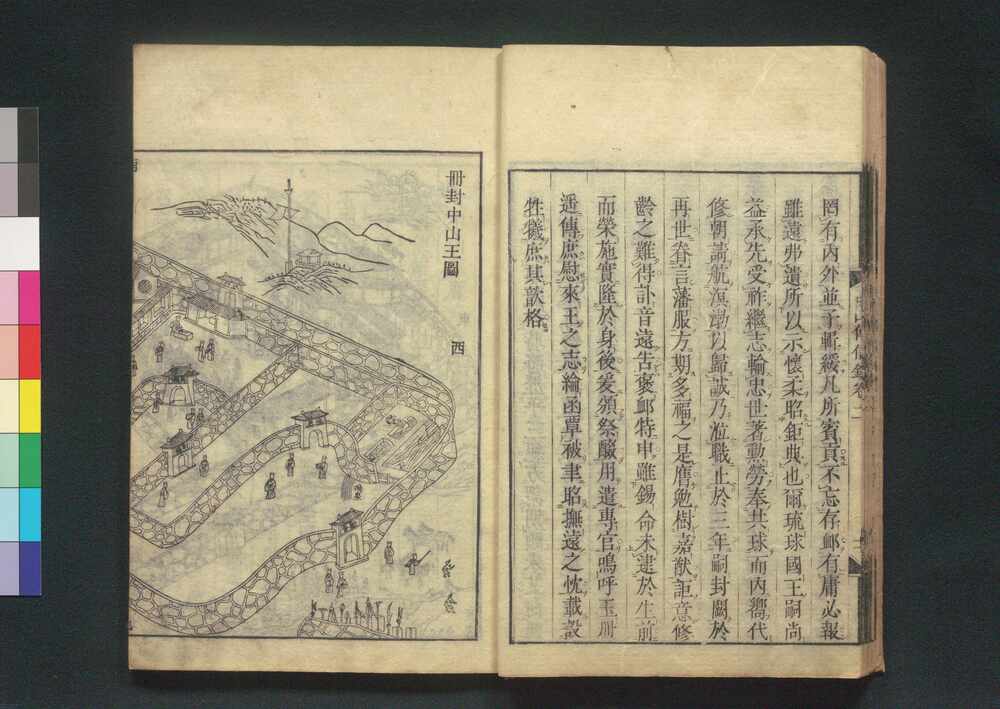 罔有內外並予輯綏凡所賓貢不忘存䘏有庸必報
雖遠弗遺所以示懷柔昭鉅典也爾琉球國王嗣尚
益承先受祚繼志輸忠世著勤勞奉共球而內嚮代
修朝請航溟渤以歸誠乃涖職止於三年嗣封闕於
再世眷言藩服方期多福之是膺勉樹嘉猷詎意修
齡之難得訃音遠吿褒䘏特申雖錫命未逮於生前
而榮施實隆於身後爰頒祭醊用遣專官嗚呼玉冊
遙傳庶慰來王之志綸函覃被聿昭撫遠之忱載設
牲犧庶其歆格
冊封中山王圖
西